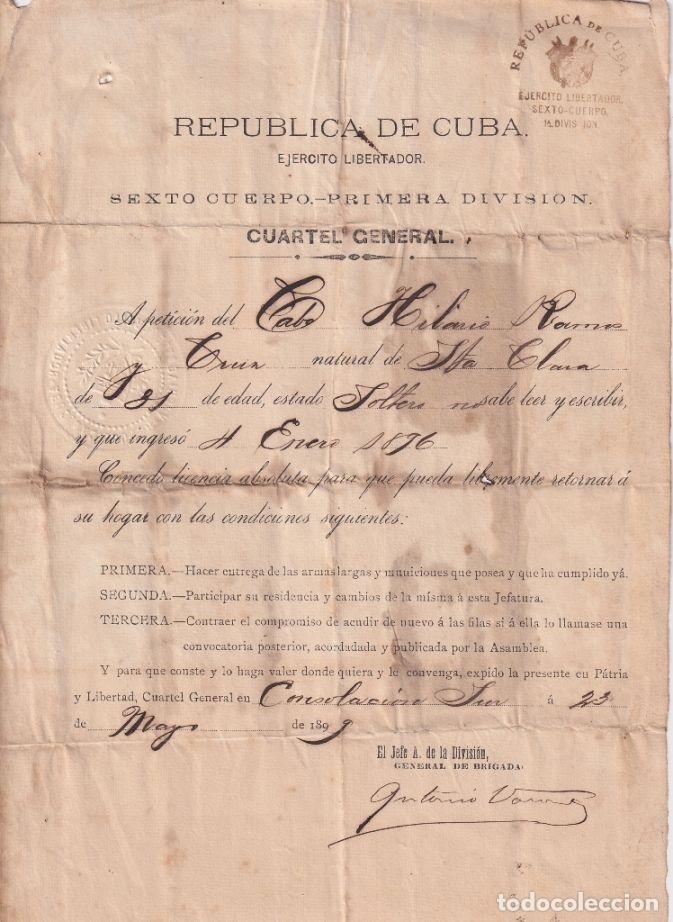 REPÚBLICA DE CUBA.
EJERCITO LIBERTADOR.
SEXTO-CUERPO.
1A. DIVISION.
REPUBLICA DE CUBA.
EJERCITO LIBERTADOR.
SEXTO CUERPO.—PRIMERA DIVISION.
CUARTEL GENERAL.
A petición del Cabo Hilario Ramos
y Cruz natural de Sta Clara
de 21 de edad, estado Soltero no sabe leer y escribir,
y que ingresó 4 Enero 1896
Concedo licencia absoluta para que pueda libremente retornar á
su hogar con las condiciones siguientes:
PRIMERA.—Hacer entrega de las armas largas y municiones que posea y que ha cumplido yá.
SEGUNDA.—Participar su residencia y cambios de la misma á esta Jefatura.
TERCERA.—Contraer el compromiso de acudir de nuevo á las filas si á ella lo llamase una
convocatoria posterior, acordadada y publicada por la Asamblea.
Y para que conste y lo haga valer donde quiera y le convenga, expido la presente en Pátria
y Libertad, Cuartel General en Consolación Sur á 23
de Mayo de 1899
El Jefe A. de la División,
GENERAL DE BRIGADA
Antonio
todocoleccion